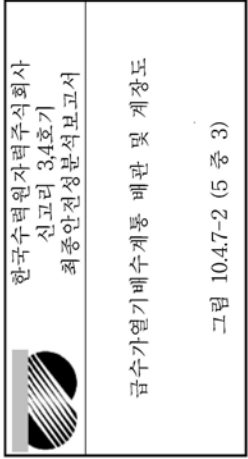 한국수력원자력주식회사
신고리 3,4호기
최종안전성분석보고서
급수가열기배수계통 배관 및 계장도
그림 10.4.7-2 (5 중 3)